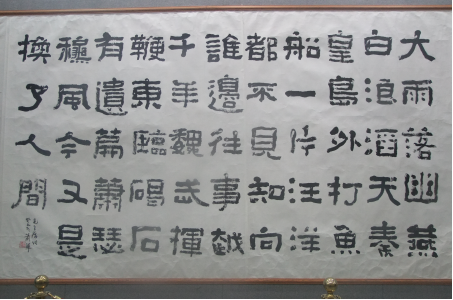 大雨落幽燕
白浪滔天秦
皇島外打魚
船一片汪洋
都不見知向
誰邊往事越
千年魏武揮
鞭東臨碣石
有遺篇蕭瑟
穐風今又是
換了人間